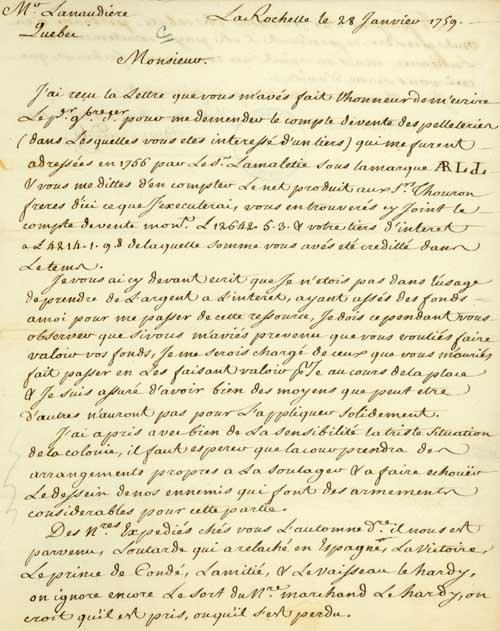 Mr. Lanaudiere
La Rochelle le 28 Janvier 1759.
Quebec
Monsieur.
J'ai reçu la Lettre que vous m'avés fait l'honneur de m'ecrire
Le per. 9bre pour me demender le compte de vente des pelleteries
(dans Lesquelles vous etes interessé d'un tiers) qui me furent
adressées en 1756 par Le Sr. Lamaletie sous la marque ÆR L d L
& vous me dittes d'en compter Le net produit aux Srs. Thouron
freres d'ici ce que J'executerai, vous en trouverés cy Joint le
compte de vente mont. L 12642. 5. 3. & votre tiers d'interet
a L 4214. 1. 9d de laquelle somme vous avés eté creditté dans
Le tems.
Je vous ai cy devant ecrit que Je n'etois pas dans l'usage
de prendre de L'argent a L'interet, ayant assés des fonds
a moi pour me passer de cette ressource, Je dois cependant vous
observer que si vous m'aviés prevenu que vous vouliés faire
valoir vos fonds, Je me serois chargé de ceux que vous m'auriés
fait passer en Les faisant valoir au cours de la place
& Je suis assuré d'avoir bien des moyens que peut etre
d'autres n'auront pas pour L'appliquer Solidement.
J'ai apris avec bien de La sensibilité la triste Situation
de la colonie, il faut esperer que la cour prendra des
arrangements propres a La soulager & a faire echouër
Le dessein de nos ennemis qui font des armements
considerables pour cette partie.
Des Nres Expediés chés vous L'automne dre. il nous est
parvenu, L'outarde qui a relaché en Espagne, La Victoire,
Le prime de Condé, Lamitié, & Le Vaisseau le hardy,
on ignore encore Le Sort du Nre. marchand Le hardy, on
croit qu'il est pris, ou qu'il s'est perdu.